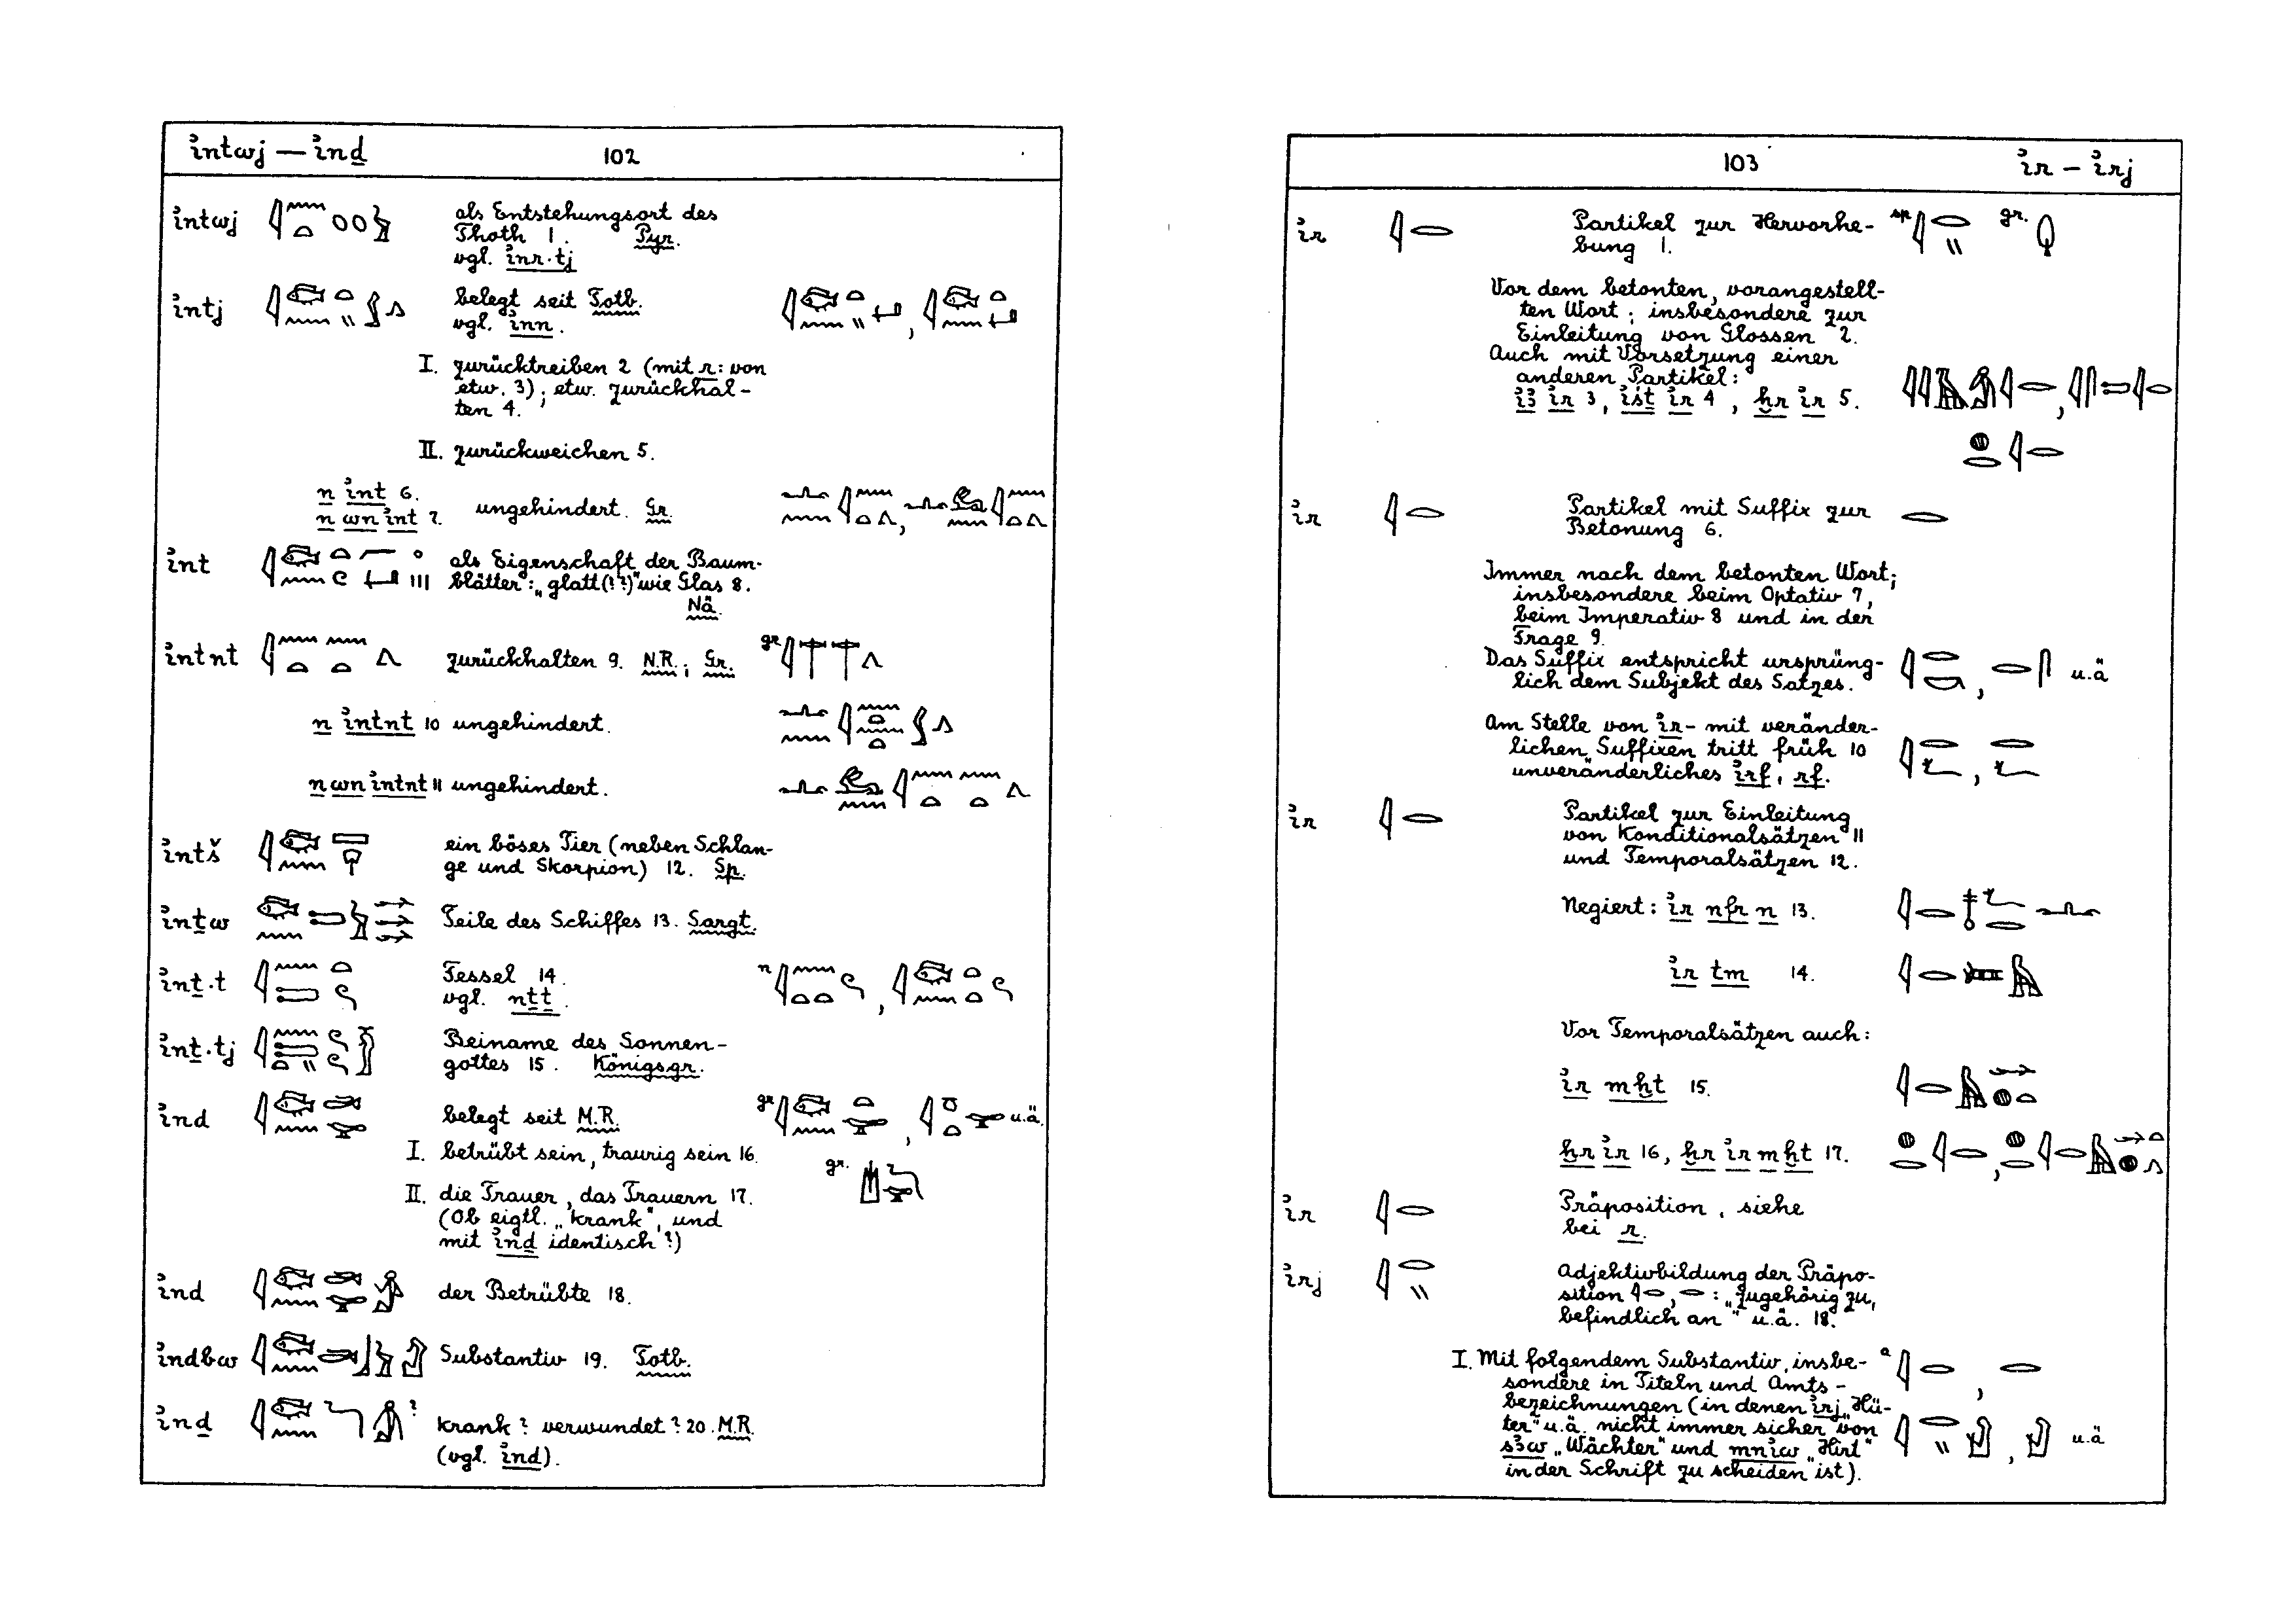 ı͗ntwj — ı͗nḏ 102
ı͗ntwj als Entstehungsort des
Thoth 1. Pyr.
vgl. ı͗nr.tj
ı͗ntj belegt seit Totb.
vgl. ı͗nn.
I. zurücktreiben 2 (mit r: von
etw. 3); etw. zurückhal-
ten 4.
II. zurückweichen 5.
n ı͗nt 6.
n wn ı͗nt 7. ungehindert. Gr.
ı͗nt als Eigenschaft der Baum-
blätter: „glatt(!?)" wie Glas 8.
Nä.
ı͗ntnt zurückhalten 9. N.R.; Gr. gr.
n ı͗ntnt 10 ungehindert.
n wn ı͗ntnt 11 ungehindert.
ı͗ntš ein böses Tier (neben Schlan-
ge und Skorpion) 12. Sp.
ı͗nṯw Teile des Schiffes 13. Sargt.
ı͗nṯ.t Fessel 14. n
vgl. nṯṯ.
ı͗nṯ.tj Beiname des Sonnen-
gottes 15. Königsgr.
ı͗nd belegt seit M.R. gr. u.ä.
I. betrübt sein, traurig sein 16. gr.
II. die Trauer, das Trauern 17.
(Ob eigtl. „krank", und
mit ı͗nḏ identisch?)
ı͗nd der Betrübte 18.
ı͗ndbw Substantiv 19. Totb.
ı͗nḏ ? krank? verwundet? 20. M.R.
(vgl. ı͗nd).
103 ı͗r — ı͗rj
ı͗r Partikel zur Hervorhe- sp. gr.
bung 1.
Vor dem betonten, vorangestell-
ten Wort; insbesondere zur
Einleitung von Glossen 2.
Auch mit Vorsetzung einer
anderen Partikel:
ı͗ꜣ ı͗r 3, ı͗sṯ ı͗r 4, ḫr ı͗r 5.
ı͗r Partikel mit Suffix zur
Betonung 6.
Immer nach dem betonten Wort;
insbesondere beim Optativ 7,
beim Imperativ 8 und in der
Frage 9.
Das Suffix entspricht ursprüng-
lich dem Subjekt des Satzes. u.ä
Am Stelle von ı͗r- mit veränder-
lichen Suffixen tritt früh 10
unveränderliches ı͗rf, rf.
ı͗r Partikel zur Einleitung
von Konditionalsätzen 11
und Temporalsätzen 12.
Negiert: ı͗r nfr n 13.
ı͗r tm 14.
Vor Temporalsätzen auch:
ı͗r mḫt 15.
ḫr ı͗r 16, ḫr ı͗r m ḫt 17.
ı͗r Präposition, siehe
bei r.
ı͗rj Adjektivbildung der Präpo-
sition 𓇋𓂋, 𓂋: „zugehörig zu,
befindlich an" u.ä. 18.
I. Mit folgendem Substantiv, insbe- a
sondere in Titeln und Amts-
bezeichnungen (in denen ı͗rj „Hü-
ter" u.ä. nicht immer sicher von
sꜣw „Wächter" und mnı͗w „Hirt" u.ä
in der Schrift zu scheiden ist).